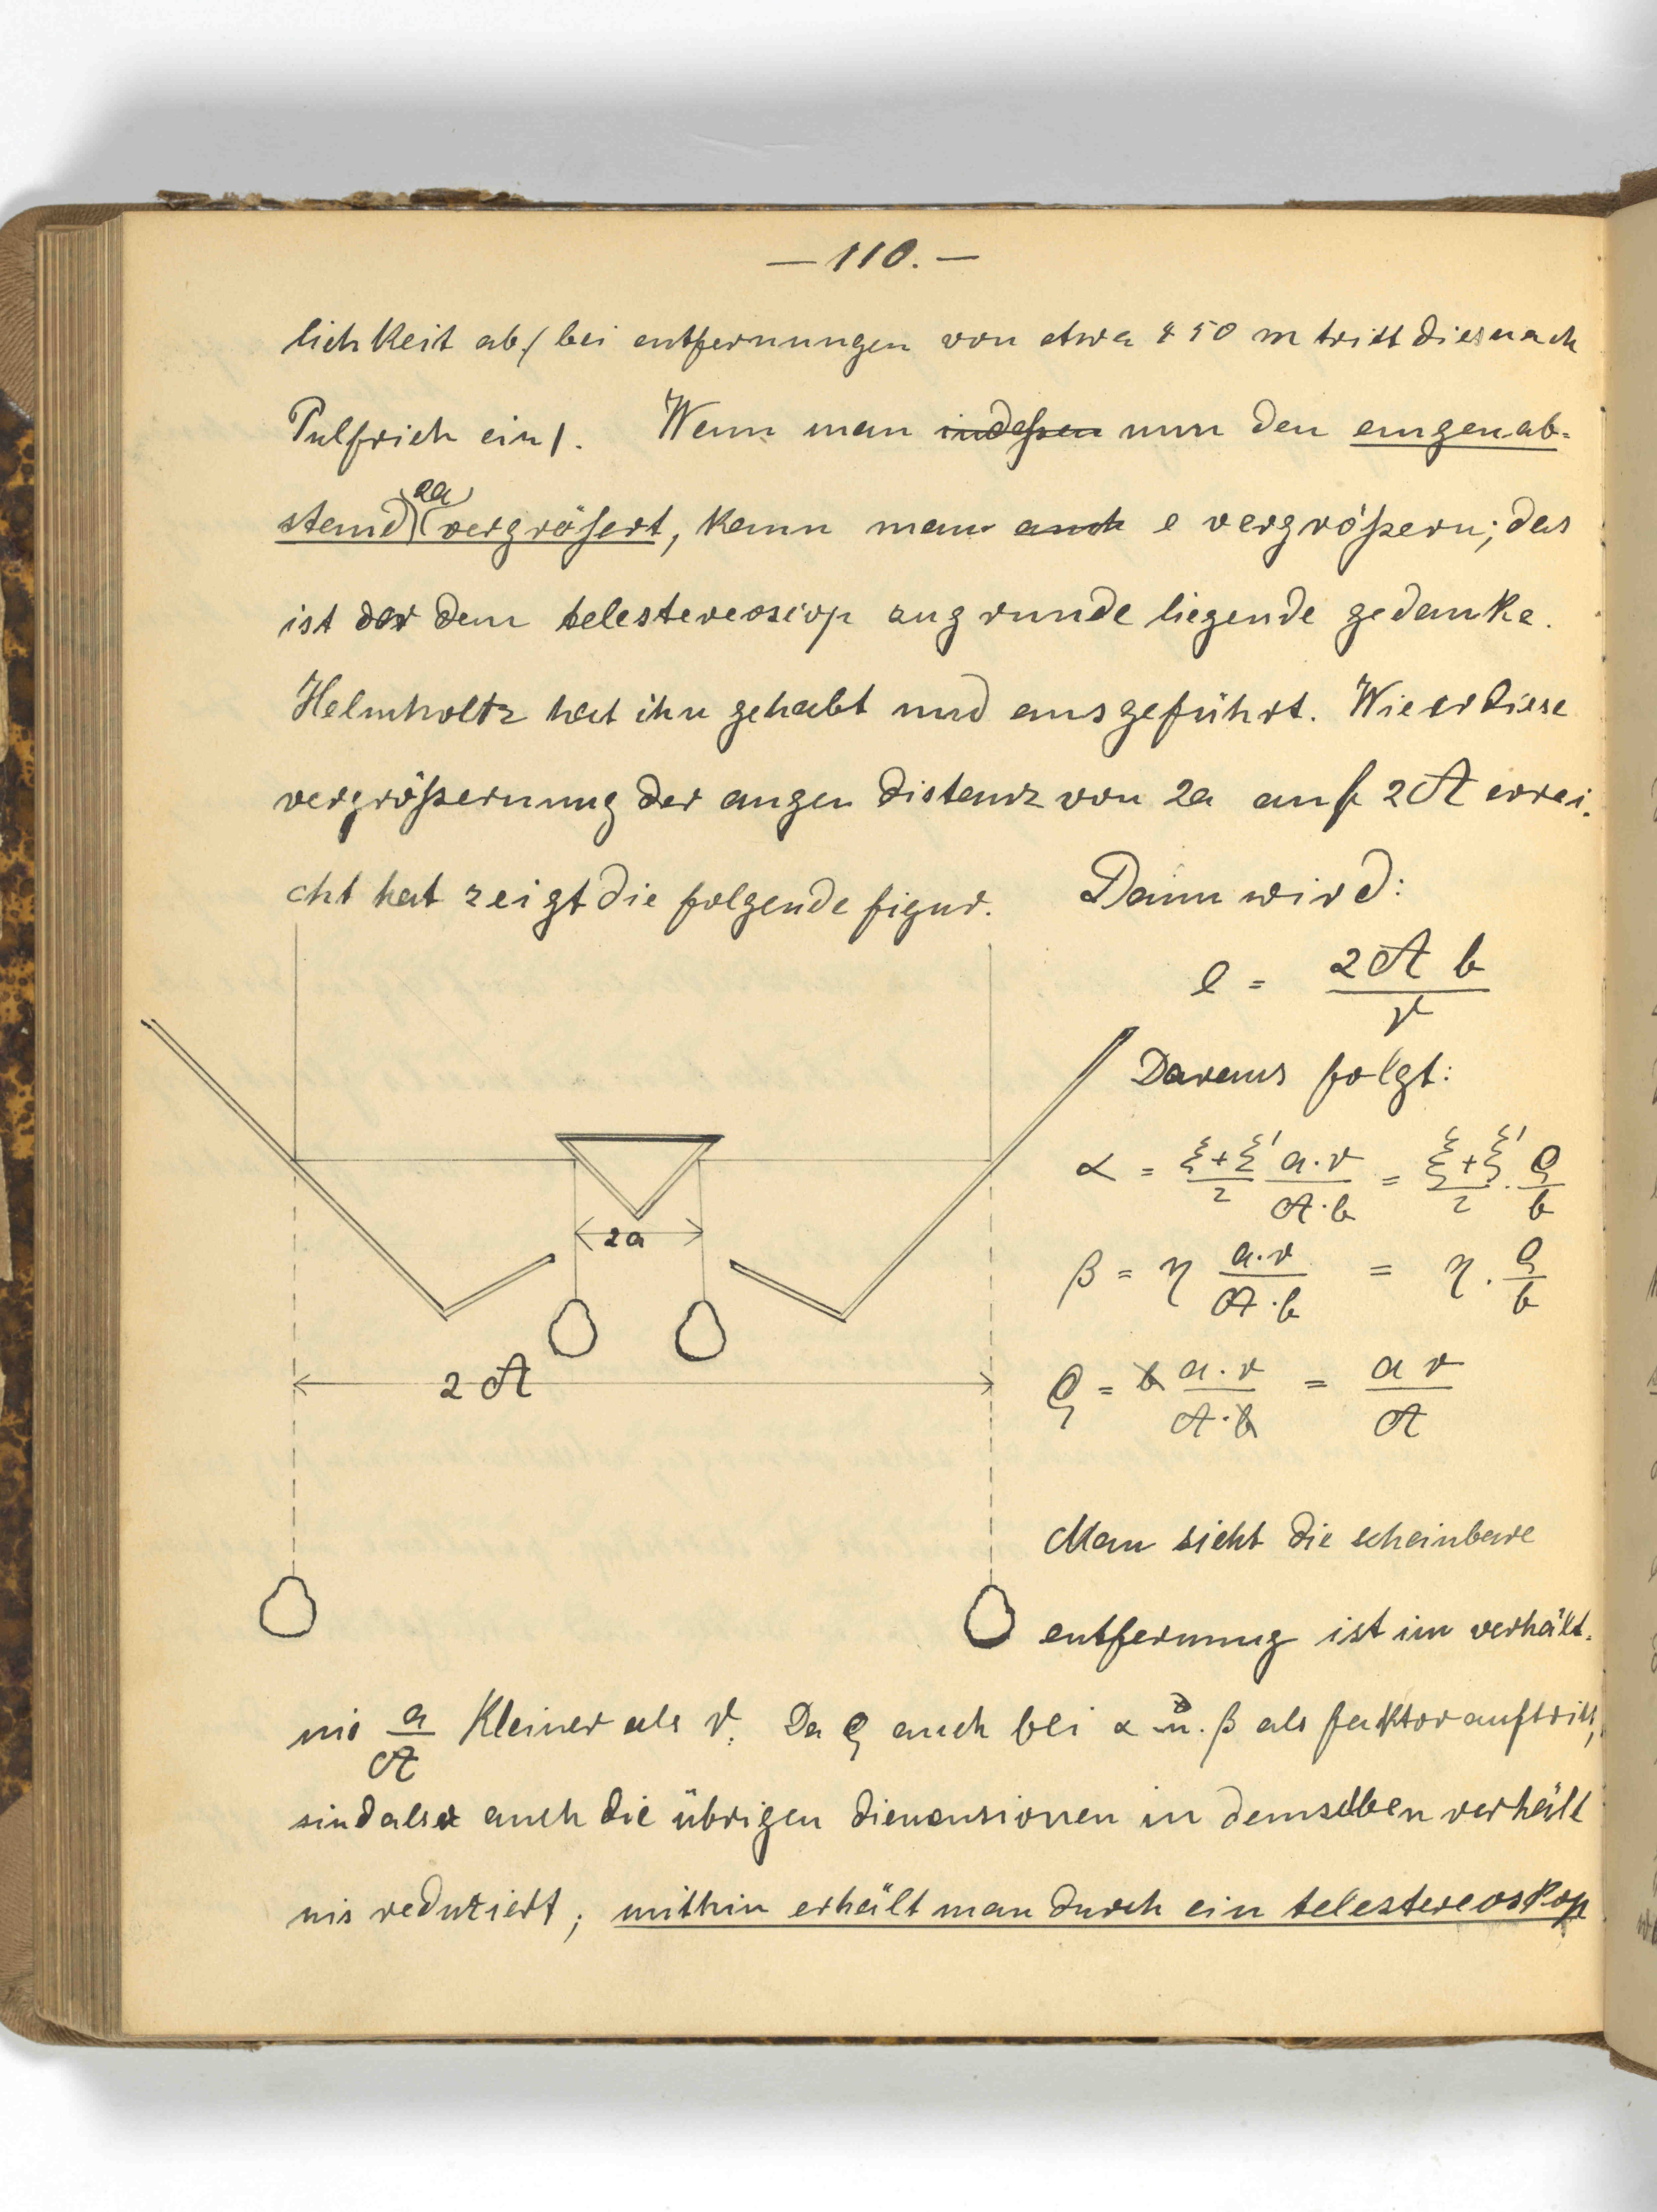 — 110. —
lichkeit ab/ bei entfernungen von etwa 450 m tritt dies nach
Pulfrich ein/. Wenn man indessen nun den augenab-
stand (2a) vergrößert, kann man auch e vergrößern; das
ist der dem telestereoscop zugrunde liegende gedanke.
Helmholtz hat ihn gehabt und ausgeführt. Wie er diese
vergrößernung der augen distanz von 2a auf 2A errei-
cht hat zeigt die folgende figur. Dann wird:
e = 2A b / r
Daraus folgt:
α = ξ+ξ'/2 a·r/A·b = ξ+ξ'/2 · ϱ/b
β = η a·r/A·b = η · ϱ/b
ϱ = b a·r/A·b = a r/A
2a
2A
Man sieht die scheinbare
entfernung ist im verhält-
nis a/A kleiner als r. Da ϱ auch bei α u. β als faktor auftritt,
sind also auch die übrigen dimensionen in demselben verhält
nis reduziert; mithin erhält man durch ein telestereoskop